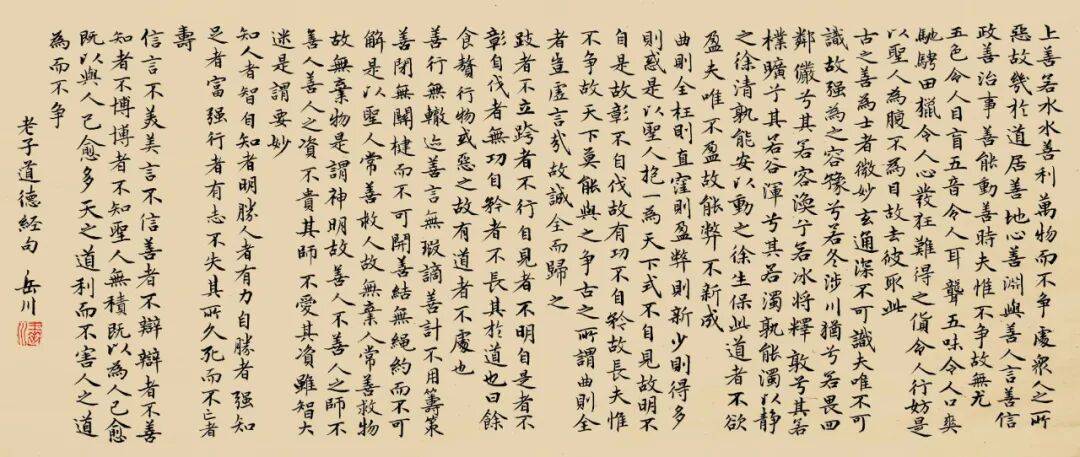 上善若水水善利萬物而不争處衆人之所
惡故幾於道居善地心善淵與善人言善信
政善治事善能動善時夫惟不争故無尤
五色令人目盲五音令人耳聾五味令人口爽
馳騁田獵令人心發狂難得之貨令人行妨是
以聖人為腹不為目故去彼取此
古之善為士者微妙玄通深不可識夫唯不可
識故强為之容豫兮若冬涉川猶兮若畏四
鄰儼兮其若容渙兮若冰將釋敦兮其若
樸曠兮其若谷渾兮其若濁孰能濁以靜
之徐清孰能安以動之徐生保此道者不欲
盈夫唯不盈故能弊不新成
曲則全枉則直窪則盈弊則新少則得多
則惑是以聖人抱一為天下式不自見故明不
自是故彰不自伐故有功不自矜故長夫惟
不争故天下莫能與之争古之所謂曲則全
者豈虛言哉故誠全而歸之
跂者不立跨者不行自見者不明自是者不
彰自伐者無功自矜者不長其於道也曰餘
食贅行物或惡之故有道者不處也
善行無轍迹善言無瑕謫善計不用籌策
善閉無關楗而不可開善結無繩約而不可
解是以聖人常善救人故無棄人常善救物
故無棄物是謂神明故善人不善人之師不
善人善人之資不貴其師不愛其資雖智大
迷是謂要妙
知人者智自知者明勝人者有力自勝者强知
足者富强行者有志不失其所久死而不亡者
壽
信言不美美言不信善者不辯辯者不善
知者不博博者不知聖人無積既以為人己愈
既以與人己愈多天之道利而不害人之道
為而不争
老子道德经句 岳川